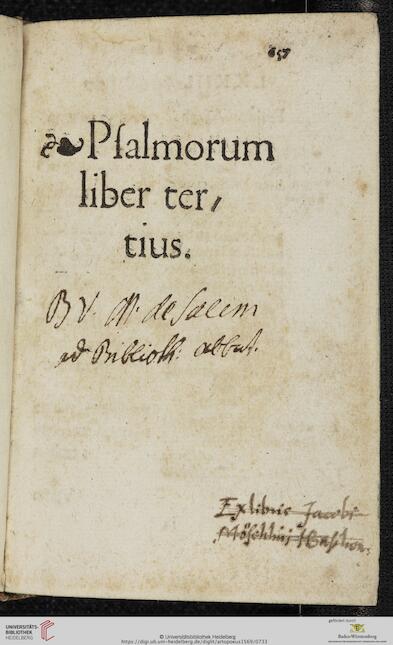 657
Pſalmorum
liber ter,
tius.
B V. M. de Salem
ad Biblioth: abbat.
Ex libris Jacobi
UNIVERSITÄTS-
BIBLIOTHEK
HEIDELBERG
© Universitätsbibliothek Heidelberg
https://digi.ub.uni-heidelberg.de/diglit/artopoeus1569/0733
gefördert durch
Baden-Württemberg